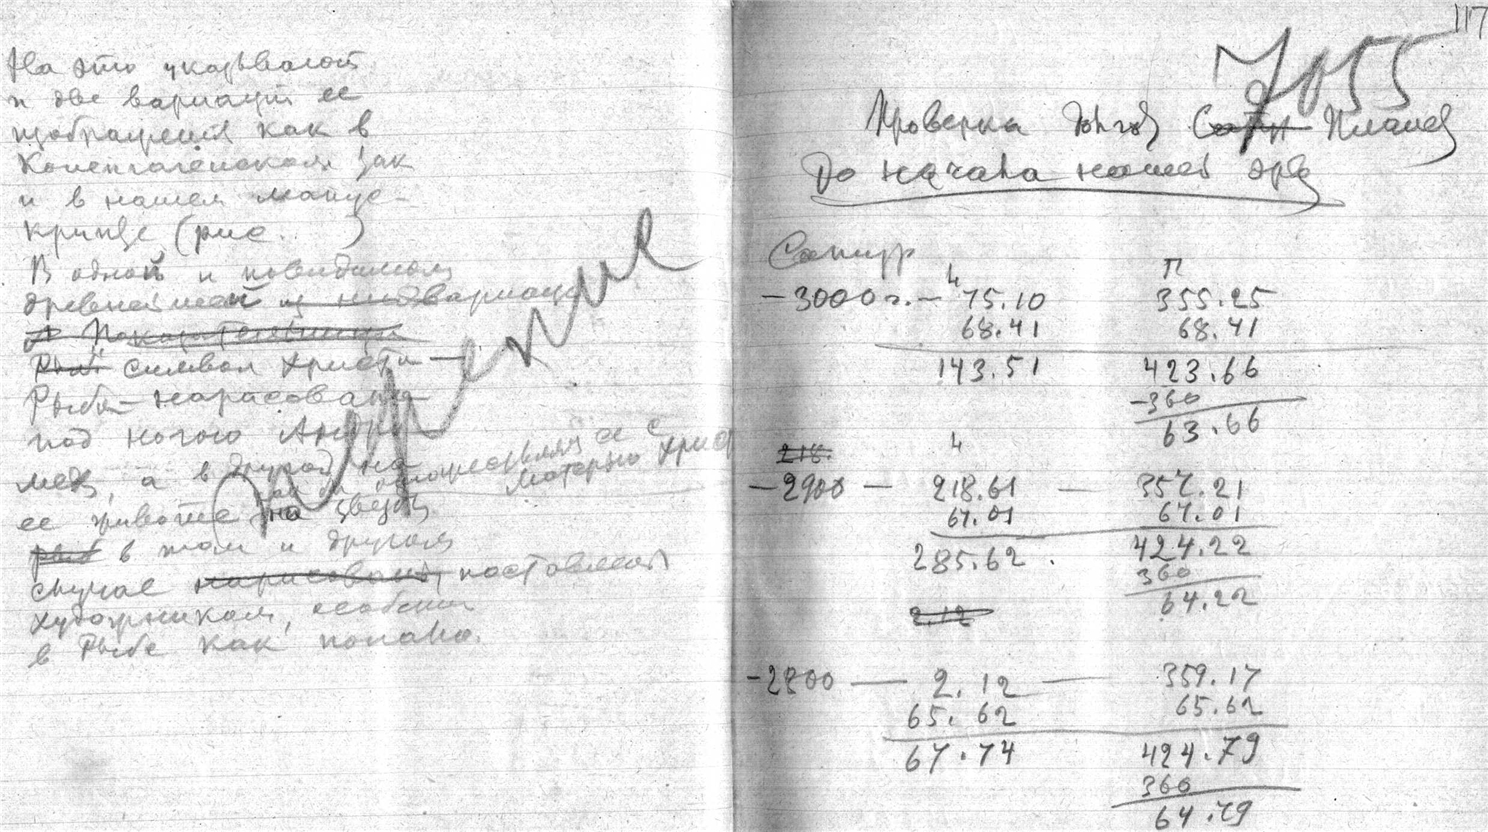 На это указывают
и две вариации ее
изображения как в
Копенгагенском зак
и в нашем манус-
крипте (рис. )
В одной и повидимому
древнейшей из них вариации
символ Христа —
Рыба нарисована
под ногою Андро
меды, а в другой на
ее животе на звезды
в том и другом
случае нарисована поставлен
художником, особенно
в Рыбе как попало.
117
7055
Проверка долгот Сатур Планет
До начала нашей эры
Сатурн
Ч П
-3000 г. — 75.10 355.25
68.41 68.41
143.51 423.66
-360
63.66
218.
Ч
-2900 — 218.61 — 357.21
67.01 67.01
285.62. 424.22
360
64.22
2.12
-2800 — 2.12 — 359.17
65.62 65.62
67.74 424.79
360
64.79